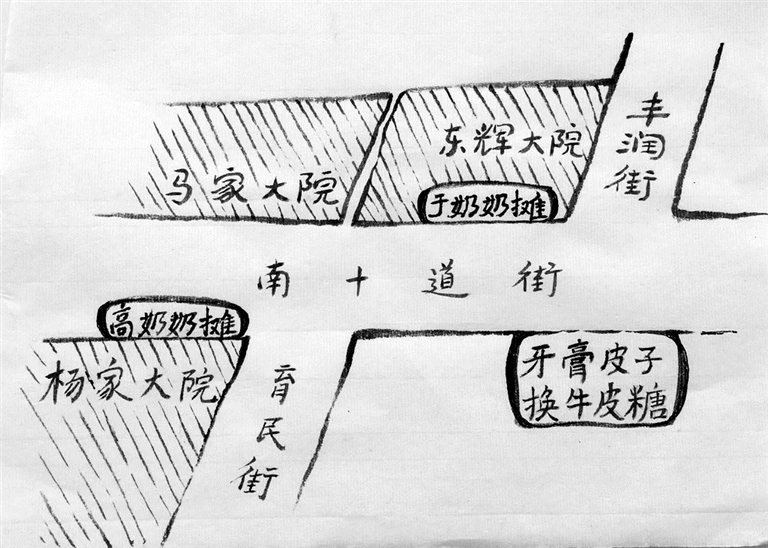 丰润街
东辉大院
马家大院
于奶奶摊
南十道街
高奶奶摊
牙膏皮子
换牛皮糖
杨家大院
育民街